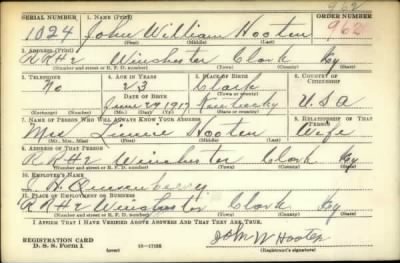 962
SERIAL NUMBER 1. NAME (Print) ORDER NUMBER
1024 John William Hooten 962
(First) (Middle) (Last)
2. ADDRESS (Print)
R R #2 Winchester Clark Ky
(Number and street or R. F. D. number) (Town) (County) (State)
3. TELEPHONE 4. AGE IN YEARS 5. PLACE OF BIRTH 6. COUNTRY OF CITIZENSHIP
No 23 Clark
DATE OF BIRTH (Town or county)
June 29 1917 Kentucky U.S.A
(Exchange) (Number) (Mo.) (Day) (Yr.) (State or country)
7. NAME OF PERSON WHO WILL ALWAYS KNOW YOUR ADDRESS 8. RELATIONSHIP OF THAT PERSON
Mrs Hooten Wife
(Mr., Mrs., Miss) (First) (Middle) (Last)
9. ADDRESS OF THAT PERSON
R R #2 Winchester Clark Ky
(Number and street or R. F. D. number) (Town) (County) (State)
10. EMPLOYER'S NAME
11. PLACE OF EMPLOYMENT OR BUSINESS
R R #2 Winchester Clark Ky
(Number and street or R. F. D. number) (Town) (County) (State)
I AFFIRM THAT I HAVE VERIFIED ABOVE ANSWERS AND THAT THEY ARE TRUE.
REGISTRATION CARD
D. S. S. Form 1 (over) 16—17105 John W Hooten
(Registrant's signature)